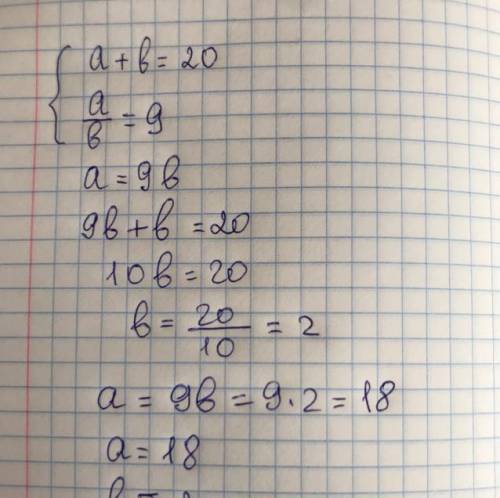 a + b = 20
a/b = 9
a = 9b
9b + b = 20
10b = 20
b = 20/10 = 2
a = 9b = 9 · 2 = 18
a = 18
b =